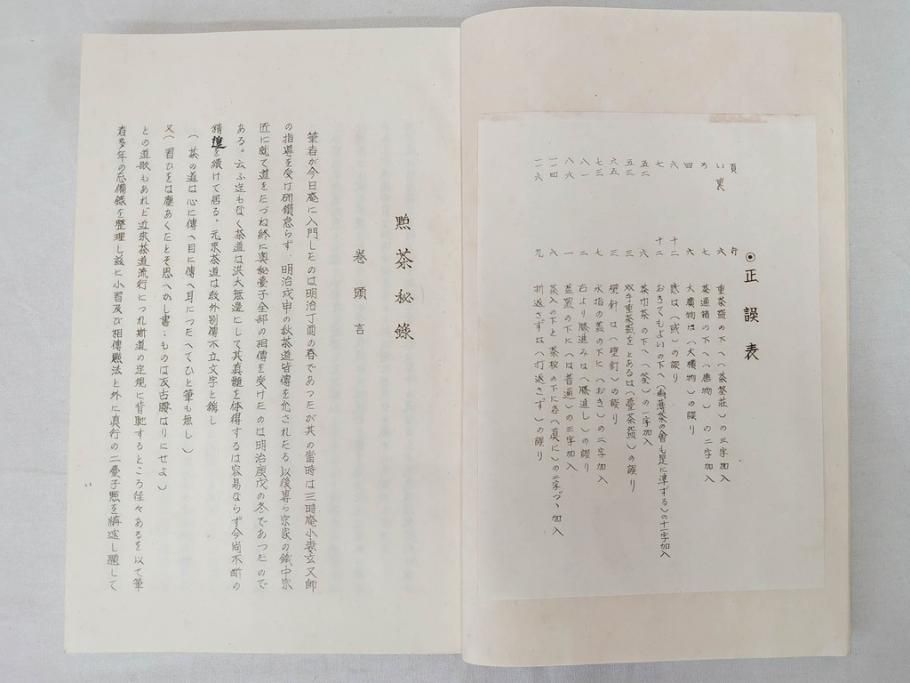 ◉正誤表
頁 行
い裏 六 重茶碗の下へ(茶筌莊)の三字加入
ろ 七 茶通箱の下へ(唐物)の二字加入
四 六 大廣物は(大橫物)の誤り
六 十二 戓は(或)の誤り
七 十二 おきてもよいの下へ( も是に準ずる)の十一字加入
五二 六 茶巾茶の下へ(筌)の一字加入
五三 三 双手重茶碗をとあるは(臺茶碗)の誤り
六五 三 壁針は(壁釘)の誤り
七三 七 水指の蓋の下に(おき)の二字加入
八一 二 右より膝進みは(膝進し)の誤り
八六 一 蓋置の下に(は普通)の三字加入
一一四 八 茶入の下と茶杓の下に各(眞に)の二字づゝ加入
一二六 九 折返さずは(打返さず)の誤り
點茶秘録
巻頭言
筆者が今日庵に入門したのは明治丁酉の春であつたが其の當時は三時庵小妻玄又師
の指導を受け研鑽怠らず、明治戊申の秋茶道皆傳を允されたる以後專ら宗家の鐵中宗
匠に就て道をたづね終に奥秘臺子全部の相傳を受けたのは明治庚戌の冬であつたので
ある。云ふ迄もなく茶道は洪大無邊にして其真髓を体得するは容易ならず今尚不断の
精進を續けて居る。元来茶道は教外別傳不立文字と稱し
(茶の道は心に傳へ目に傳へ耳につたへてひと筆も無し)
又(習ひをは塵あくたとそ思へかし書ものは反古腰はりにせよ)
との道歌もあれど近来茶道流行につれ斯道の定規に背馳するところ往々あるを以て筆
者多年の忘備録を整理し玆に小習及び相傳點法と外に眞行の二臺子點を縯述し題して
い